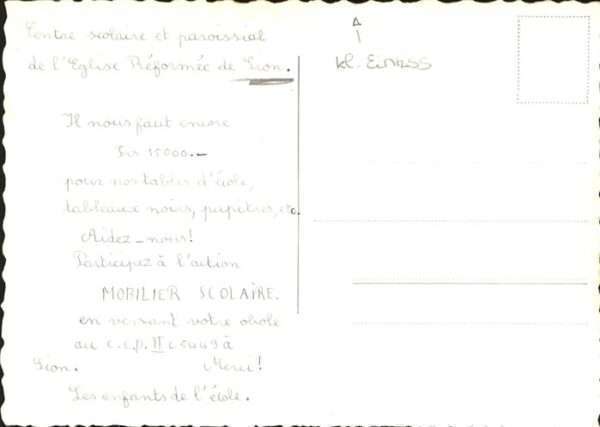 Centre scolaire et paroissial
de l'Eglise Réformée de Sion.
Il nous faut encore
Frs 15000.—
pour nos tables d'école,
tableaux noirs, pupitres, etc.
Aidez-nous!
Participez à l'action
MOBILIER SCOLAIRE.
en versant votre obole
au c.c.p. II c 5449 à
Sion. Merci!
Les enfants de l'école.
A
Kl.